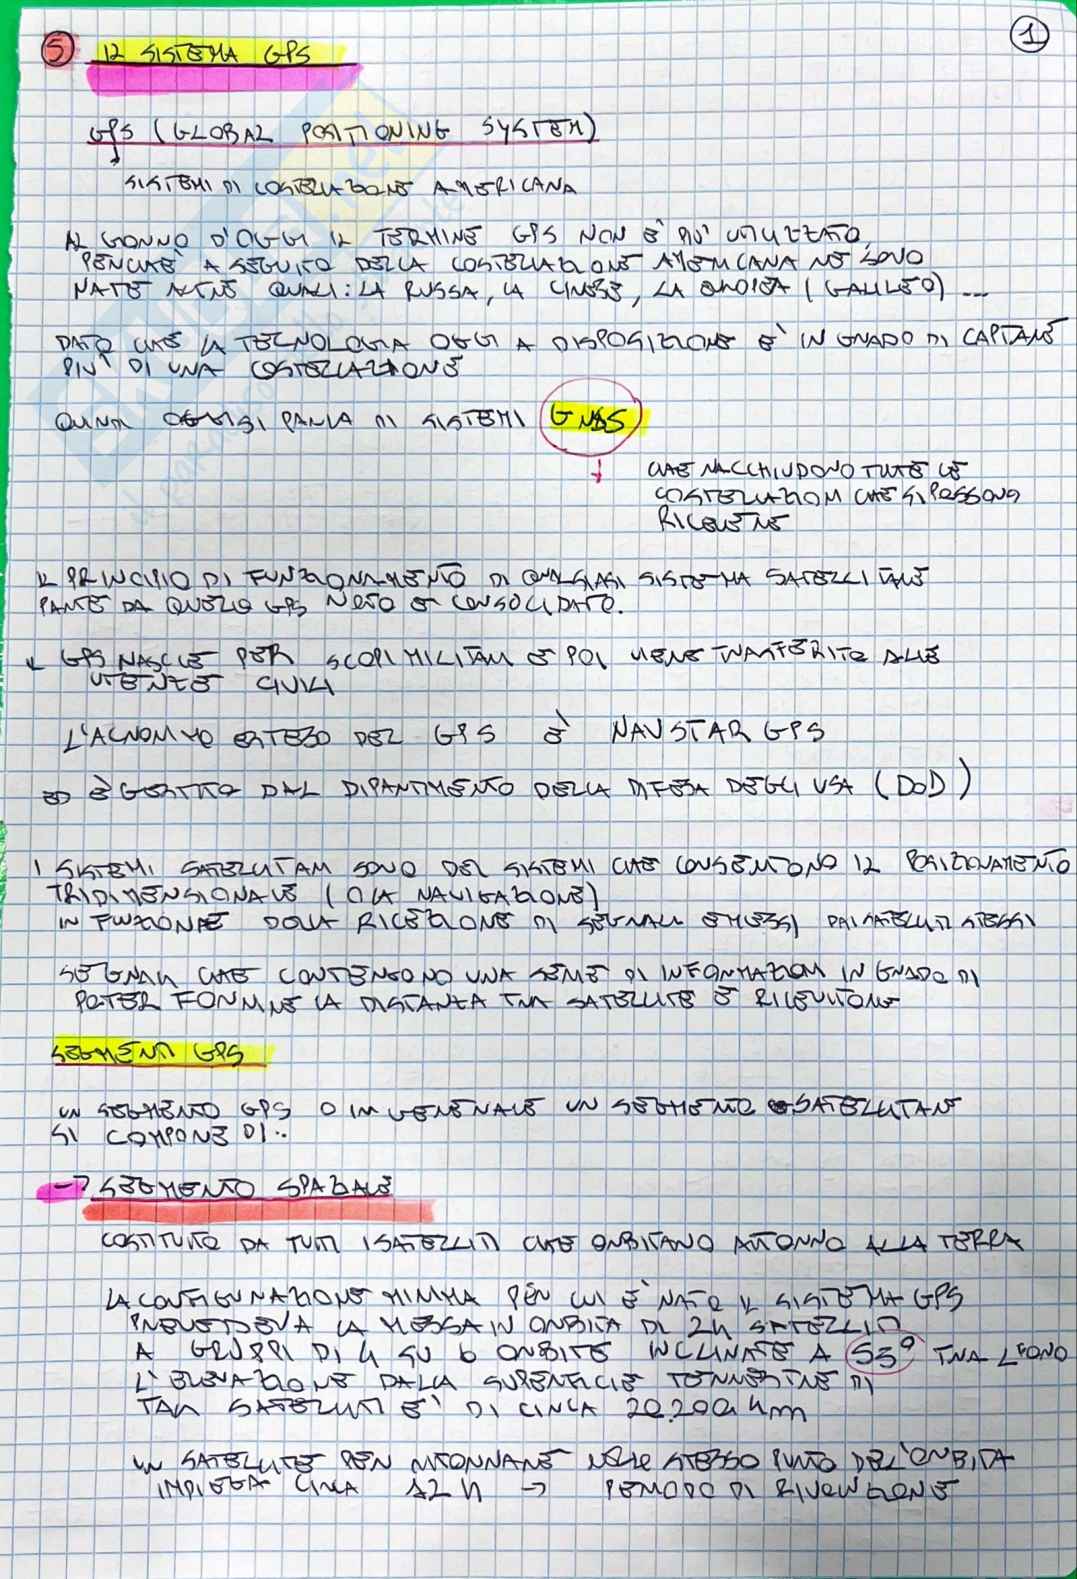 1
5 IL SISTEMA GPS
GPS (GLOBAL POSITIONING SYSTEM)
SISTEMI DI COSTELLAZIONE AMERICANA
AL GIORNO D'OGGI IL TERMINE GPS NON È PIÙ UTILIZZATO
PERCHÈ A SEGUITO DELLA COSTELLAZIONE AMERICANA NE SONO
NATE ALTRE QUALI: LA RUSSA, LA CINESE, LA (GALILEO) ...
DATO CHE LA TECNOLOGIA OGGI A DISPOSIZIONE È IN GRADO DI CAPTARE
PIÙ DI UNA COSTELLAZIONE
QUINDI OGGI SI PARLA DI SISTEMI GNSS
CHE RACCHIUDONO TUTTE LE
COSTELLAZIONI CHE SI POSSONO
RICEVERE
IL PRINCIPIO DI FUNZIONAMENTO DI QUALSIASI SISTEMA SATELLITALE
PARTE DA QUELLO GPS NOTO E CONSOLIDATO.
IL GPS NASCE PER SCOPI MILITARI E POI VIENE TRASFERITO ALLE
UTENZE CIVILI
L'ACRONIMO ESTESO DEL GPS È NAVSTAR GPS
ED È GESTITO DAL DIPARTIMENTO DELLA DIFESA DEGLI USA (DoD)
I SISTEMI SATELLITARI SONO DEI SISTEMI CHE CONSENTONO IL POSIZIONAMENTO
TRIDIMENSIONALE (O LA NAVIGAZIONE)
IN FUNZIONE DELLA RICEZIONE DI SEGNALI EMESSI DAI SATELLITI STESSI
SEGNALI CHE CONTENGONO UNA SERIE DI INFORMAZIONI IN GRADO DI
POTER FORNIRE LA DISTANZA TRA SATELLITE E RICEVITORE
SEGMENTI GPS
UN SEGMENTO GPS O IN GENERALE UN SEGMENTO SATELLITARE
SI COMPONE DI:
→ SEGMENTO SPAZIALE
COSTITUITO DA TUTTI I SATELLITI CHE ORBITANO ATTORNO ALLA TERRA
LA CONFIGURAZIONE MINIMA PER CUI È NATO IL SISTEMA GPS
PREVEDEVA LA MESSA IN ORBITA DI 24 SATELLITI
A GRUPPI DI 4 SU 6 ORBITE INCLINATE A 55° TRA LORO
L'ELEVAZIONE DALLA SUPERFICIE TERRESTRE DI
TALI SATELLITI È DI CIRCA 20.200 km
UN SATELLITE PER RITORNARE NELLO STESSO PUNTO DELL'ORBITA
IMPIEGA CIRCA 12 H → PERIODO DI RIVOLUZIONE